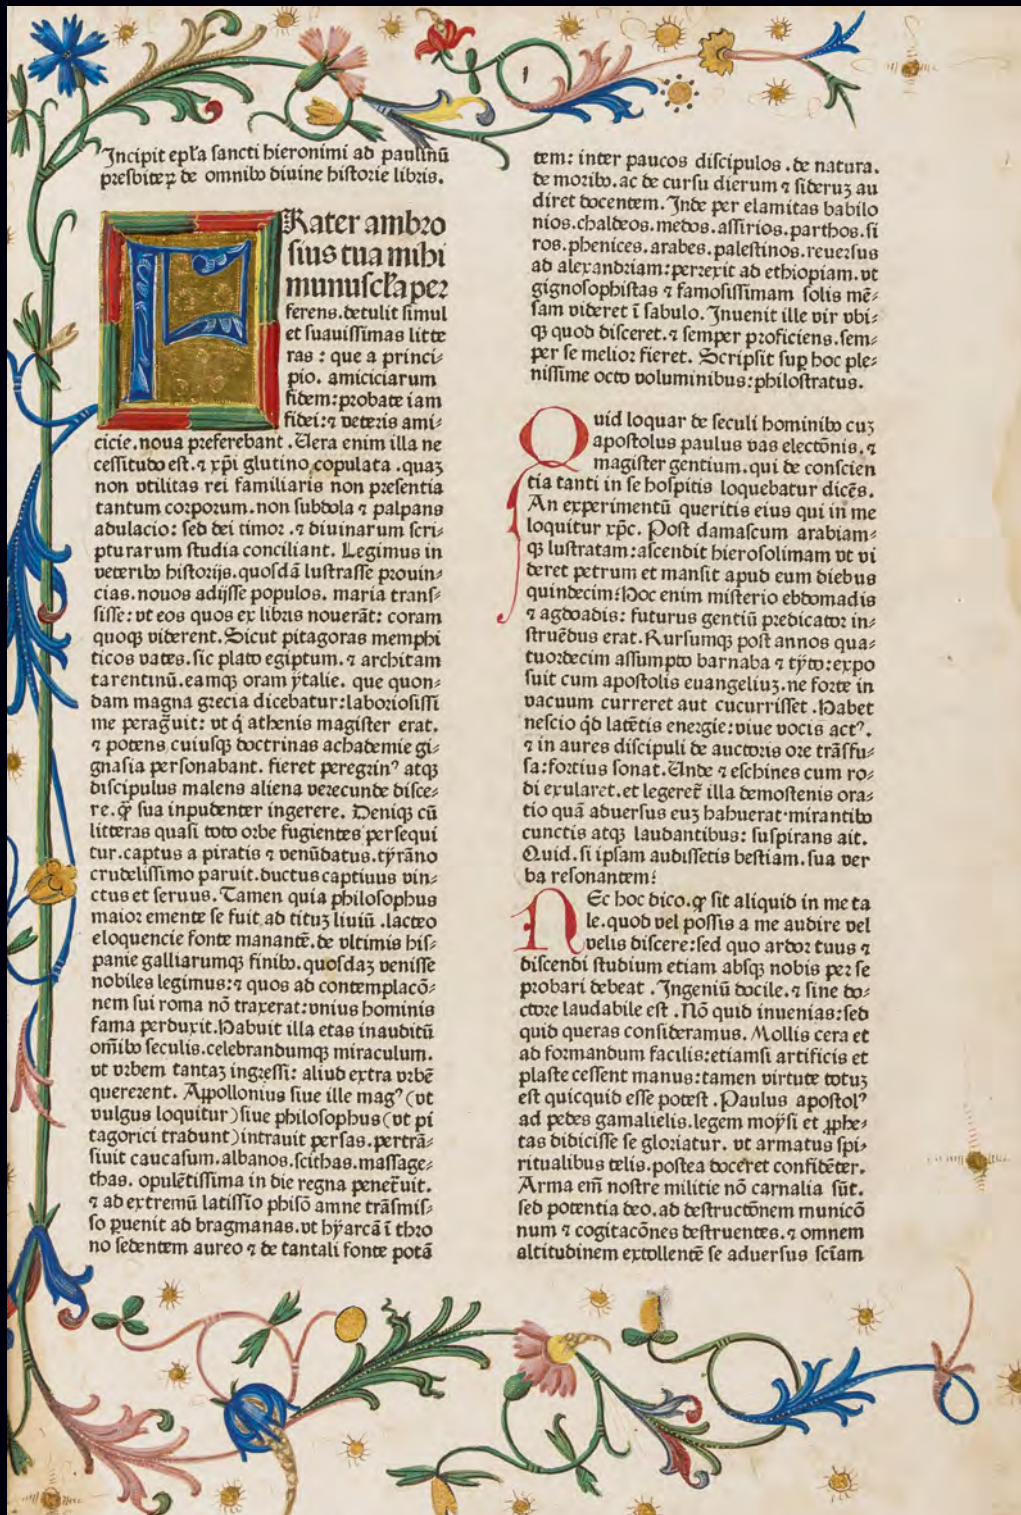 Incipit epl̄a sancti hieronimi ad paulinū
presbiteꝝ de omnibꝰ diuine historie libris.
FRater ambro
sius tua mihi
munuscl̄a per
ferens. detulit simul
et suauissimas litte
ras : que a princi⸗
pio. amiciciarum
fidem: probate iam
fidei: ⁊ veteris ami⸗
cicie. noua preferebant . Uera enim illa ne
cessitudo est. ⁊ xp̄i glutino copulata . quaꝫ
non vtilitas rei familiaris non presentia
tantum corporum. non subdola ⁊ palpans
adulacio: sed dei timor . ⁊ diuinarum scri⸗
pturarum studia conciliant. Legimus in
veteribꝰ historijs. quosdā lustrasse prouin⸗
cias. nouos adijsse populos. maria trans⸗
sisse: vt eos quos ex libris nouerāt: coram
quoqꝫ viderent. Sicut pitagoras memphi
ticos vates. sic plato egiptum. ⁊ architam
tarentinū. eamqꝫ oram ytalie. que quon⸗
dam magna grecia dicebatur: laboriosissi
me peragͥuit: vt q̇ athenis magister erat.
⁊ potens cuiusqꝫ doctrinas achademie gi⸗
gnasia personabant. fieret peregrinꝰ atqꝫ
discipulus malens aliena verecunde disce⸗
re. qͣꝫ sua inpudenter ingerere. Deniqꝫ cū
litteras quasi toto orbe fugientes persequi
tur. captus a piratis ⁊ venūdatus. tyrāno
crudelissimo paruit. ductus captiuus vin⸗
ctus et seruus. Tamen quia philosophus
maior emente se fuit ad tituꝫ liuiū . lacteo
eloquencie fonte manantē. de vltimis his⸗
panie galliarumqꝫ finibꝰ. quosdaꝫ venisse
nobiles legimus: ⁊ quos ad contemplacō⸗
nem sui roma nō traxerat: vnius hominis
fama perduxit. Habuit illa etas inauditū
om̄ibꝰ seculis. celebrandumqꝫ miraculum.
vt vrbem tantaꝫ ingressi: aliud extra vrbē
quererent. Appollonius siue ille magꝰ (vt
vulgus loquitur) siue philosophus (vt pi
tagorici tradunt) intrauit persas. pertrā⸗
siuit caucasum. albanos. scithas. massage⸗
thas. opulētissima in die regna penet̄uit.
⁊ ad extremū latissīo phisō amne trāsmis⸗
so ꝑuenit ad bragmanas. vt hyarcā ī thro
no sedentem aureo ⁊ de tantali fonte potā
tem: inter paucos discipulos . de natura.
de moribꝰ. ac de cursu dierum ⁊ sideruꝫ au
diret docentem. Inde per elamitas babilo
nios. chaldeos. medos. assirios. parthos. si
ros. phenices. arabes. palestinos. reuersus
ad alexandriam: perrexit ad ethiopiam. vt
gignosophistas ⁊ famosissimam solis mē⸗
sam videret ī sabulo. Inuenit ille vir vbi⸗
qꝫ quod disceret. ⁊ semper proficiens. sem⸗
per se melior fieret. Scripsit suꝑ hoc ple⸗
nissime octo voluminibus: philostratus.
Quid loquar de seculi hominibꝰ cuꝫ
apostolus paulus vas electōnis. ⁊
magister gentium. qui de conscien
tia tanti in se hospitis loquebatur dicēs.
An experimentū queritis eius qui in me
loquitur xp̄c. Post damascum arabiam⸗
qꝫ lustratam: ascendit hierosolimam vt vi
deret petrum et mansit apud eum diebus
quindecim: Hoc enim misterio ebdomadis
⁊ agdoadis: futurus gentiū predicator in⸗
struēdus erat. Rursumqꝫ post annos qua⸗
tuordecim assumpto barnaba ⁊ tyto: expo
suit cum apostolis euangeliuꝫ. ne forte in
vacuum curreret aut cucurrisset . Habet
nescio q̇d latētis energie: viue vocis actꝰ.
⁊ in aures discipuli de auctoris ore trāsfu⸗
sa: fortius sonat. Unde ⁊ eschines cum ro⸗
di exularet. et legeret̄ illa demostenis ora⸗
tio quā aduersus euꝫ habuerat· mirantibꝰ
cunctis atqꝫ laudantibus: suspirans ait.
Quid. si ipsam audissetis bestiam. sua ver
ba resonantem:
NEc hoc dico. qͣꝫ sit aliquid in me ta
le. quod vel possis a me audire vel
velis discere: sed quo ardor tuus ⁊
discendi studium etiam absqꝫ nobis per se
probari debeat . Ingeniū docile. ⁊ sine do⸗
ctore laudabile est . Nō quid inuenias: sed
quid queras consideramus. Mollis cera et
ad formandum facilis: etiamsi artificis et
plaste cessent manus: tamen virtute totuꝫ
est quicquid esse potest . Paulus apostolꝰ
ad pedes gamalielis. legem moysi et ꝓphe⸗
tas didicisse se gloriatur. vt armatus spi⸗
ritualibus telis. postea doceret confidēter.
Arma em̄ nostre militie nō carnalia sūt.
sed potentia deo. ad destructōnem municō
num ⁊ cogitacōnes destruentes. ⁊ omnem
altitudinem extollentē se aduersus sciam